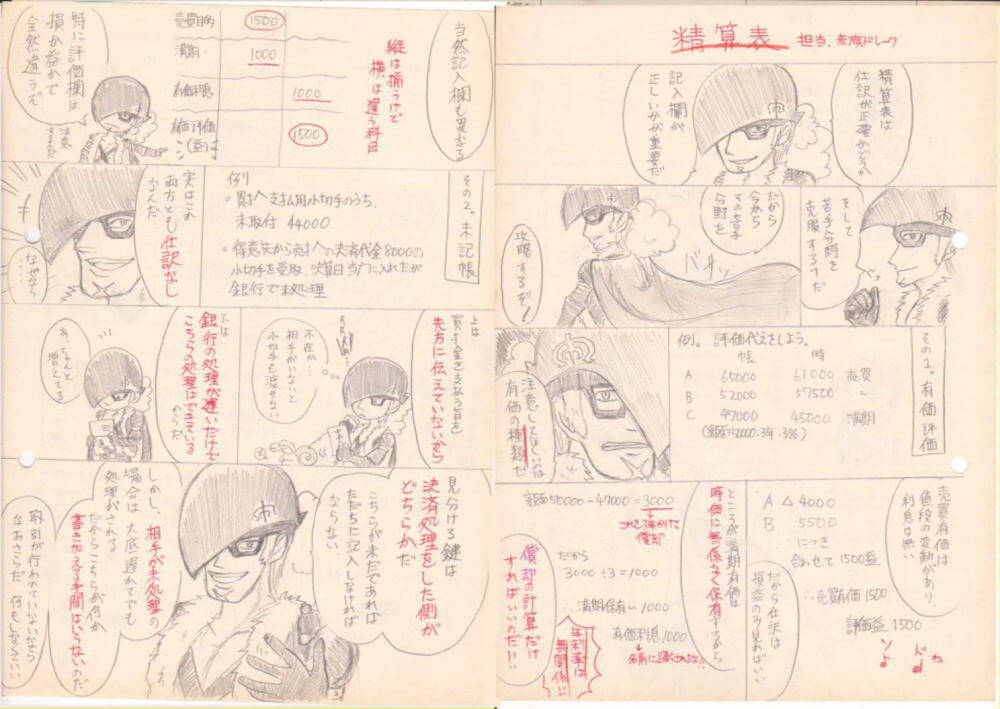 精算表
担当、赤旗ドレーク
精算表は
仕訳が正確かどうか
記入欄が
正しいかが重要だ
そして
苦手分野を
克服するコマだ
だから
今から
その苦手
分野を
攻略するぞ!
バサッ
その2。有価評価
例。評価代えをしよう。
帳 時
A 65000 61000 売買
B 52000 57500 〃
C 47000 45000 満期
(額面50000・3年・3%)
注意してほしいのは
有価の種類だ
売買有価は
値段の変動があり、
利息は無い
だから仕訳は
損益のみ見ればいい
A △4000
B 5500
につき
合わせて1500益
∴売買有価1500
評価益1500
ところが満期有価は
時価に無関係なく保有するから
額面50000-47000=3000
これを3年かけて
償却
だから
3000÷3=1000
∴満期保有い1000
有価利息1000
名前に惑わされるな!!
償却の計算だけ
すればいいのだ!!!
年利率は
無関係!!
当然記入欄も異なる
縦は揃うけど
横は違う科目
売買目的 1500
満期 1000
有価利息 1000
有価評価(益) 1500
特に評価欄は
損か益かで
全然違うぞ
注意
するんだ
その2。未記帳
例り
・買掛へ支払用小切手のうち、
未取付 44000
・得意先から売掛への夫済代金8000の
小切手を受取、決算日当Aに入れたが
銀行で未処理
実はこれ
両方とも仕訳なし
なんだ
なぜなら
…
上は
買掛金を支払う旨を
先方に伝えていないから
不在か…
相手がいないと
小切手も渡せない
下は
銀行の処理が遅いだけで
こちらの処理はできている
からだ
あ、ちゃんと
増えてる
見分ける鍵は
決済処理をした側が
どちらかだ
こちらが未だであれば
ただちに記入しなければ
ならない
しかし、相手が未処理の
場合は大底遅れてでも
処理がされる
だからこちらが何か
書き加える手間はいらないのだ
取引が行われていないなら
なおさらだ 何もしなくていい